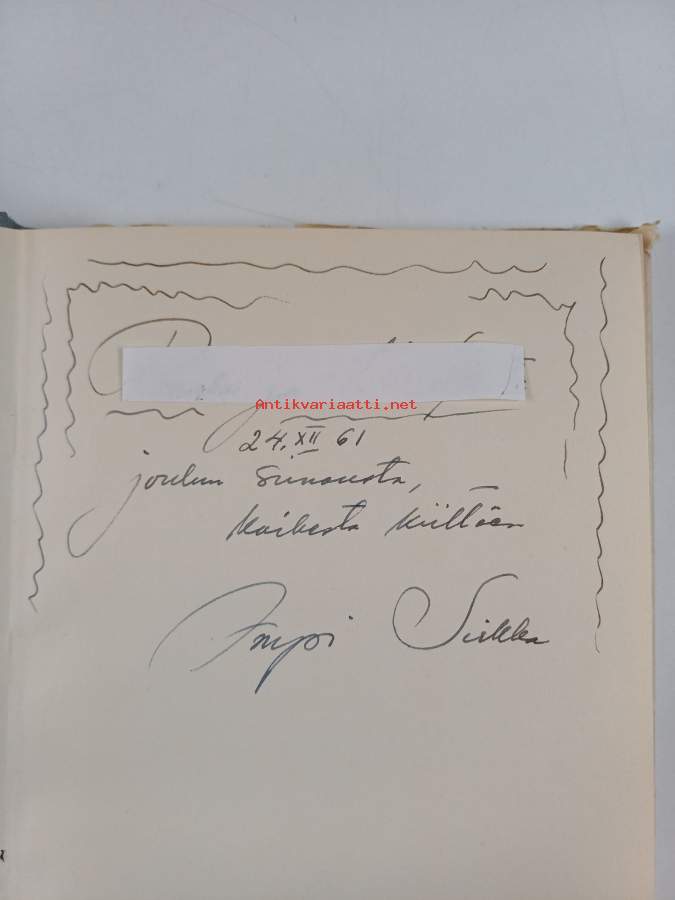 Antikvariaatti.net
24. XII 61
joulun siunausta,
kaikesta kiittäen
Impi Sirkka